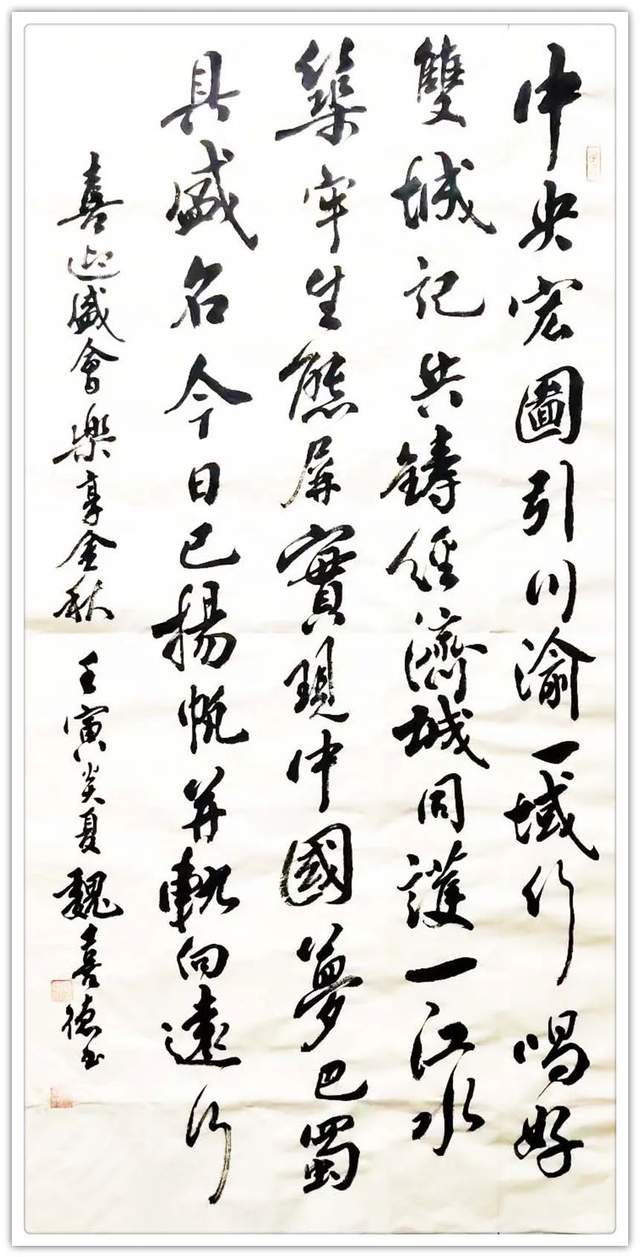 中央宏圖引川渝一域行唱好
雙城記共鑄經濟城同護一江水
築牢生態屏實現中國夢巴蜀
具盛名今日已揚帆並軌向遠行
喜迎盛會樂享金秋 壬寅炎夏魏喜德书